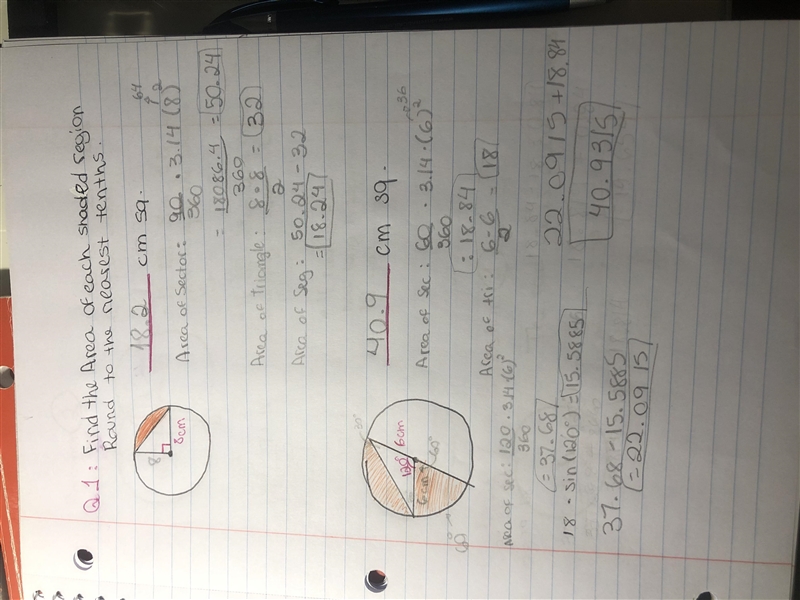 Q.1: Find the Area of each shaded region
Round to the nearest tenths.
18.2 cm sq.
8
8cm
Area of Sector: 90/360 · 3.14 (8)² 64
= 18086.4/360 = 50.24
Area of triangle: 8·8/2 = 32
Area of Seg: 50.24 - 32
= 18.24
40.9 cm sq.
6cm
120°
6cm
60°
60°
Area of Sec: 60/360 · 3.14 · (6)² 36
= 18.84
Area of tri: 6·6/2 = 18
Area of sec: 120/360 · 3.14 · (6)²
= 37.68
18 · sin(120°) = 15.5885
37.68 - 15.5885
= 22.0915
22.0915 + 18.84
40.9315